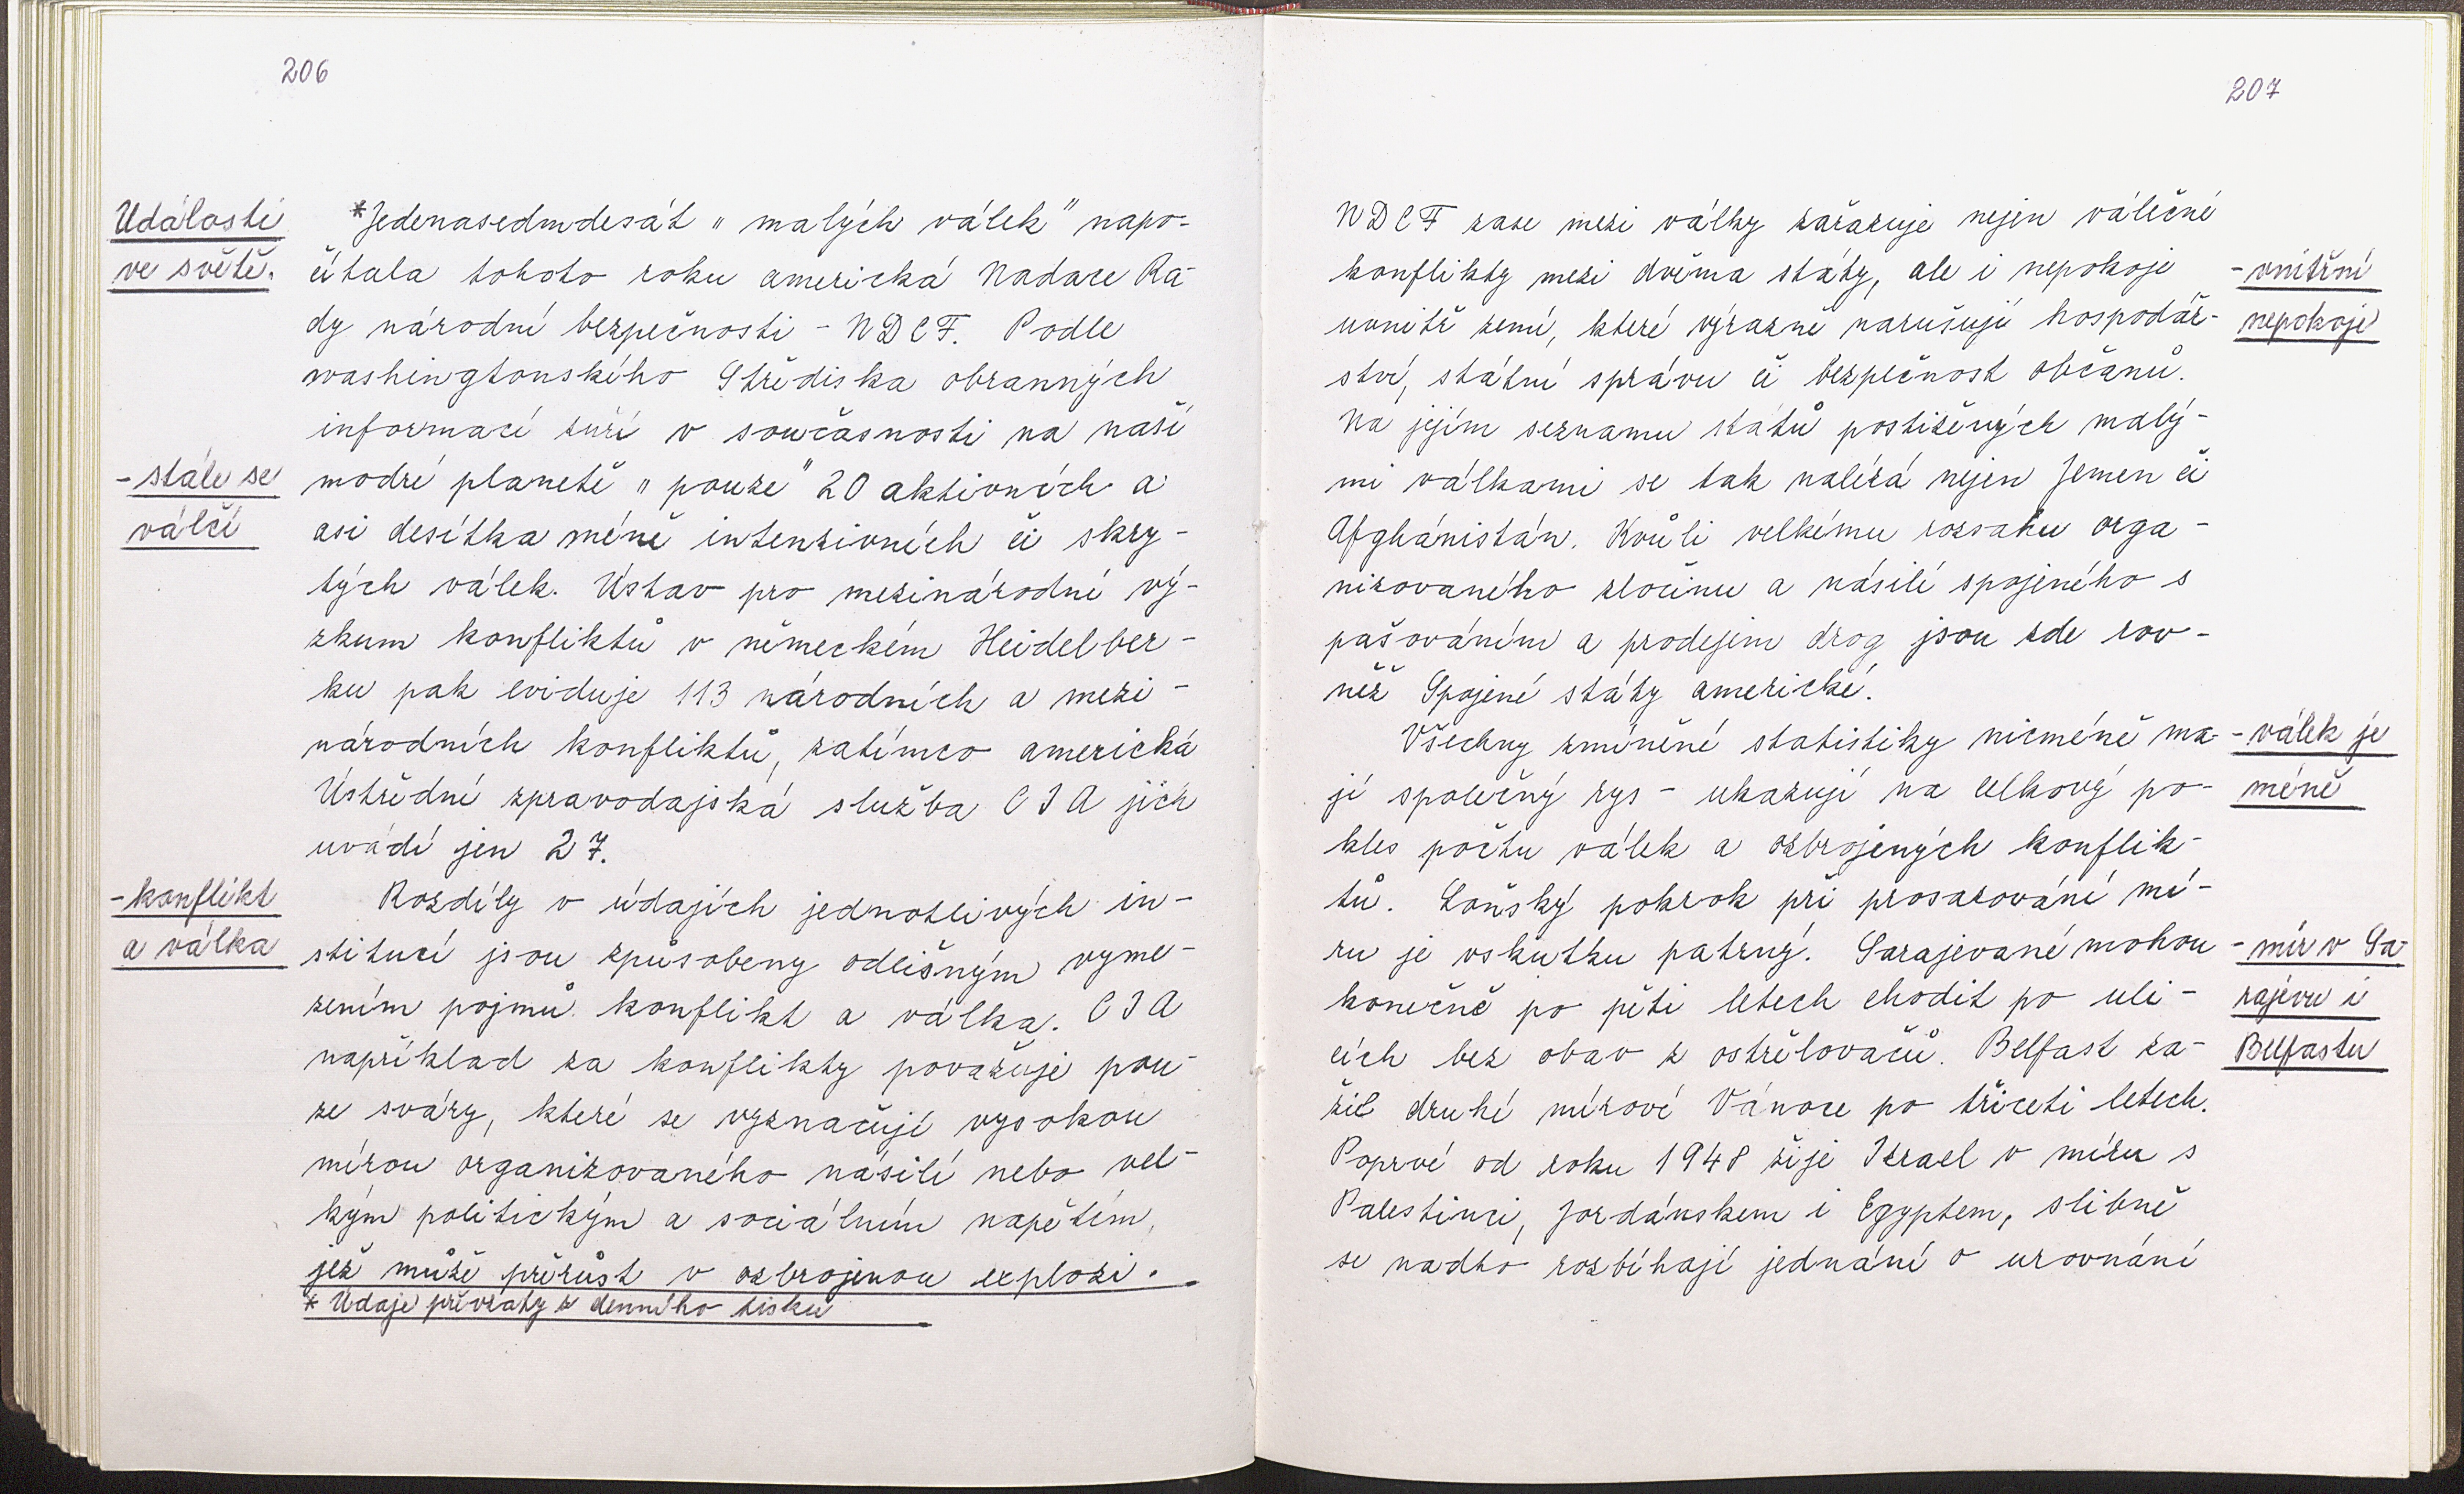 206
Události
ve světě.
*Jedenasedmdesát „malých válek" napo-
čítala tohoto roku americká Nadace Ra-
dy národní bezpečnosti - NDCF. Podle
washingtonského Střediska obranných
informací zuří v současnosti na naší
- stále se
válčí
modré planetě „pouze" 20 aktivních a
asi desítka méně intenzivních či skry-
tých válek. Ústav pro mezinárodní vý-
zkum konfliktů v německém Heidelber-
ku pak eviduje 113 národních a mezi-
národních konfliktů, zatímco americká
Ústřední zpravodajská služba CIA jich
uvádí jen 27.
- konflikt
a válka
Rozdíly v údajích jednotlivých in-
stitucí jsou způsobeny odlišným vyme-
zením pojmů konflikt a válka. CIA
například za konflikty považuje pou-
ze sváry, které se vyznačují vysokou
mírou organizovaného násilí nebo vel-
kým politickým a sociálním napětím,
jež může přerůst v ozbrojenou explozi.
* Údaje převzaty z denního tisku
207
NDCF zase mezi války zařazuje nejen válečné
konflikty mezi dvěma státy, ale i nepokoje
uvnitř zemí, které výrazně narušují hospodář-
ství, státní správu či bezpečnost občanů.
- vnitřní
nepokoje
Na jejím seznamu států postižených malý-
mi válkami se tak nalézá nejen Jemen či
Afghánistán. Kvůli velkému rozsahu orga-
nizovaného zločinu a násilí spojeného s
pašováním a prodejem drog jsou zde rov-
něž Spojené státy americké.
Všechny zmíněné statistiky nicméně ma-
jí společný rys - ukazují na celkový po-
kles počtu válek a ozbrojených konflik-
tů. Loňský pokrok při prosazování mí-
- válek je
méně
ru je vskutku patrný. Sarajevané mohou
konečně po pěti letech chodit po uli-
cích bez obav z ostřelovačů. Belfast za-
žil druhé mírové Vánoce po třiceti letech.
- mír v Sa-
rajevu i
Belfastu
Poprvé od roku 1948 žije Izrael v míru s
Palestinci, Jordánskem i Egyptem, slibně
se nadto rozbíhají jednání o urovnání